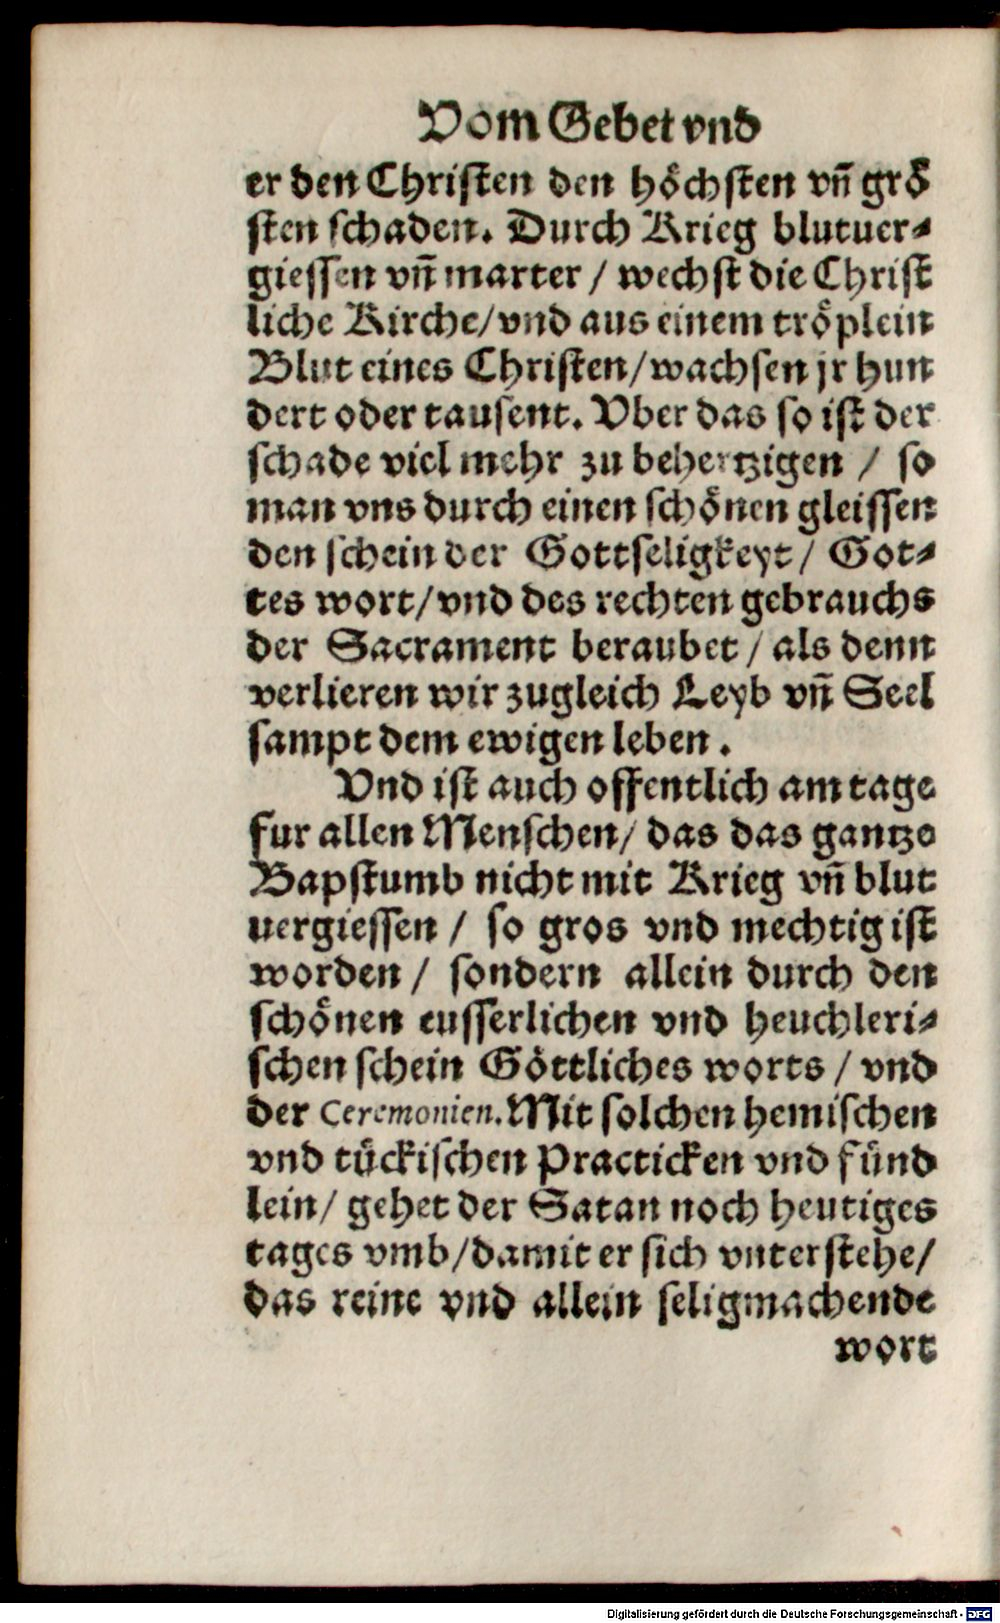 Vom Gebet vnd
er den Christen den höchsten vn̄ grö
sten schaden. Durch Krieg blutuer-
giessen vn̄ marter / wechst die Christ
liche Kirche/ vnd aus einem tröplein
Blut eines Christen/ wachsen jr hun
dert oder tausent. Vber das so ist der
schade viel mehr zu behertzigen / so
man vns durch einen schönen gleissen
den schein der Gottseligkeyt/ Got-
tes wort/ vnd des rechten gebrauchs
der Sacrament beraubet / als denn
verlieren wir zugleich Leyb vn̄ Seel
sampt dem ewigen leben.
Vnd ist auch offentlich am tage
fur allen Menschen/ das das gantze
Bapstumb nicht mit Krieg vn̄ blut
uergiessen / so gros vnd mechtig ist
worden / sondern allein durch den
schönen eusserlichen vnd heuchleri-
schen schein Göttliches worts / vnd
der Ceremonien. Mit solchen hemischen
vnd tückischen Practicken vnd fünd
lein/ gehet der Satan noch heutiges
tages vmb/ damit er sich vnterstehe/
das reine vnd allein seligmachende
wort
Digitalisierung gefördert durch die Deutsche Forschungsgemeinschaft - DFG